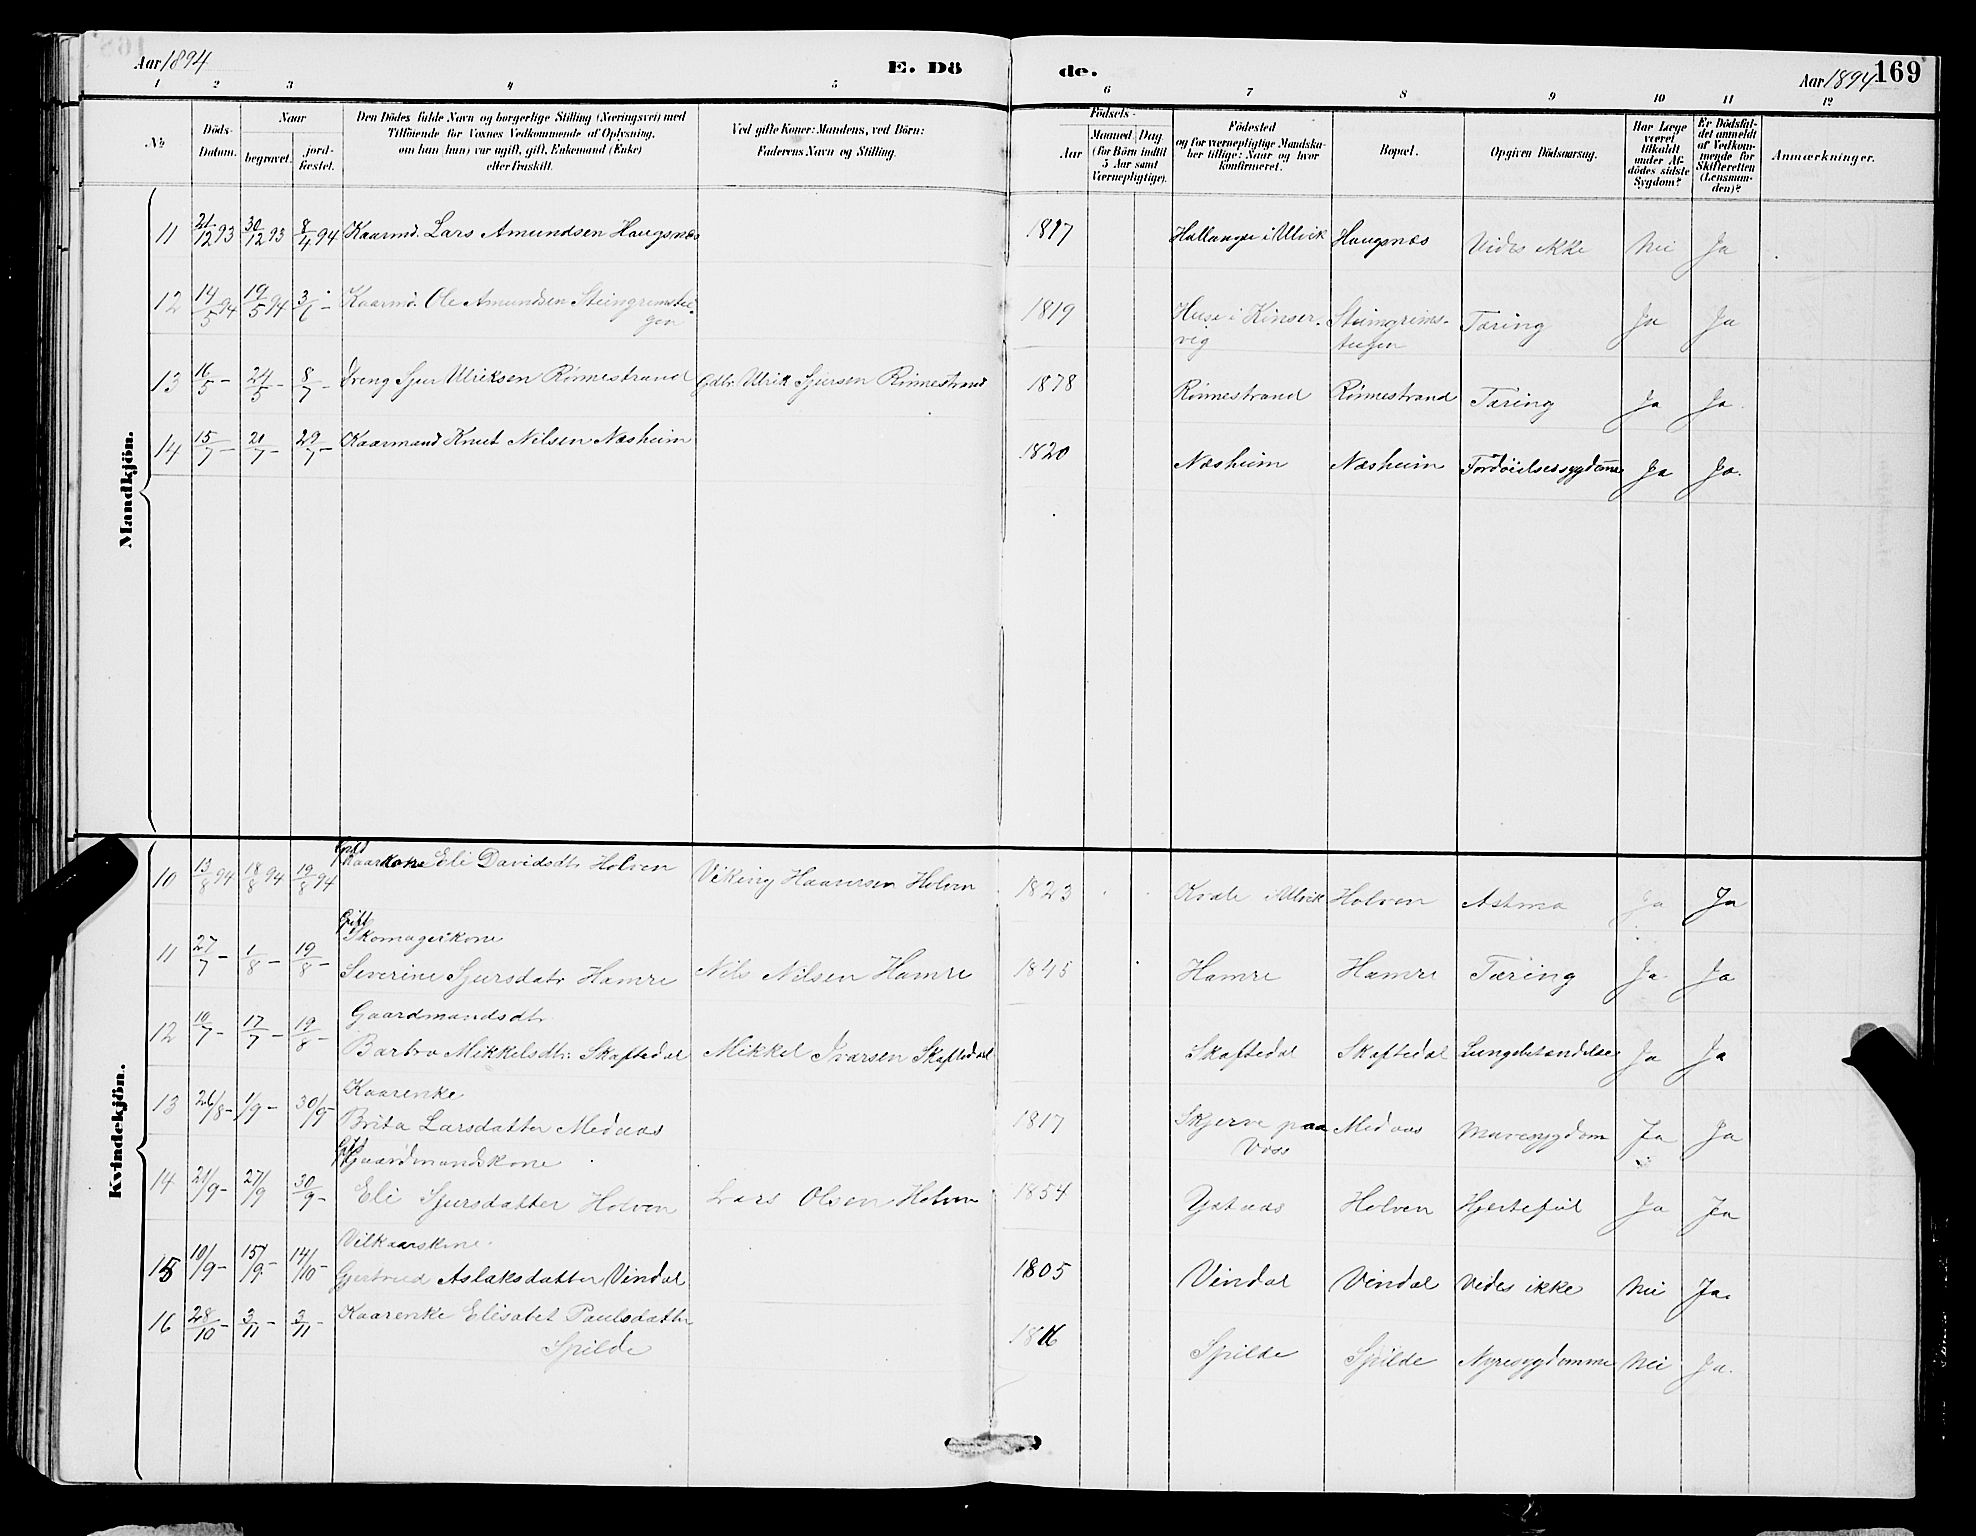 Aar 1894
E. Dö
de.
Aar 1894
169
1 2 3 4 5 6 7 8 9 10 11 12
No.
Döds-
Datum.
Naar
begravet.
jord-
fæstet.
Den Dödes fulde Navn og borgerlige Stilling (Næringsvei) med
Tilföiende for Voxnes Vedkommende af Oplysning,
om han (hun) var ugift, gift, Enkemand (Enke)
eller fraskilt.
Ved gifte Koner: Mandens, ved Börn:
Faderens Navn og Stilling.
Födsels-
Aar
Maaned Dag
(for Börn indtil
5 Aar samt
Værnepligtige).
Födested
og for værnepligtige Mandska-
ber tillige: Naar og hvor
konfirmeret.
Bopæl.
Opgiven Dödsaarsag.
Har Læge
været
tilkaldt
under Af-
dödes sidste
Sygdom?
Er Dödsfal-
det anmeldt
af Vedkom-
mende for
Skifteretten
(Lensman-
den)?
Anmærkninger.
Mandkjön.
11 21/12 93 30/12 93 8/4 94 Kaarmd. Lars Amundsen Haugsnæs 1817 Hallanger i Ulvik Haugsnæs Vides ikke Nei Ja
12 14/5 94 19/5 94 3/6 - Kaarmd. Ole Amundsen Steingrimstei-
gen
1819 Huse i Kinser-
vig
Steingrims-
teigen
Tæring Ja Ja
13 16/5 - 24/5 - 8/7 - Dreng Sjur Ulriksen Rönnestrand Gdbr. Ulrik Sjursen Rönnestrand 1878 Rönnestrand Rönnestrand Tæring Ja Ja.
14 15/7 - 21/7 - 29/7 - Kaarmand Knut Nilsen Næsheim 1820 Næsheim Næsheim Fordöielsessygdomme Ja Ja.
Kvindekjön.
10 13/8 94 18/8 94 19/8 94 Gift
Kaarkone Eli Davidsdtr Holven Viking Haaversen Holven 1823 Kvale i Ulvik Holven Astma Ja Ja
Gift
Skomagerkone
11 27/7 - 1/8 - 19/8 - Severine Sjursdatr Hamre Nils Nilsen Hamre 1845 Hamre Hamre Tæring Ja. Ja
Gaardmandsdtr.
12 10/7 - 17/7 - 19/8 - Barbro Mikkelsdtr. Skaftedal Mikkel Ivarsen Skaftedal Skaftedal Skaftedal Lungebetændelse Ja Ja
Kaarenke
13 26/8 - 1/9 - 30/9 - Brita Larsdatter Medaas 1817 Skjerve paa
Voss
Medaas Mavesygdom Ja Ja
Gift
Gaardmandskone
14 21/9 - 27/9 30/9 - Eli Sjursdatter Holven Lars Olsen Holven 1854 Ystaas Holven Hjertefeil Ja Ja
Vilkaarskone.
15 10/9 - 15/9 - 14/10 - Gjertrud Aslaksdatter Vindal 1805 Vindal Vindal Vides ikke Nei Ja.
16 28/10 - 3/11 - 3/11 - Kaarenke Elisabet Paulsdatter
Spilde
1816 Spilde Spilde Nyresygdomme Nei Ja.